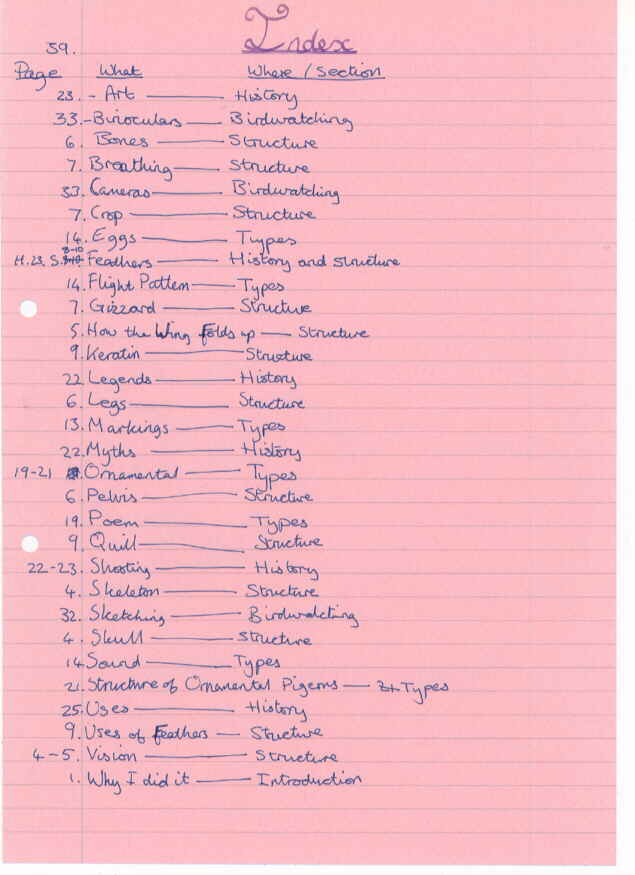 Index
39.
Page What Where / Section
23. - Art History
33. - Binoculars Birdwatching
6. Bones Structure
7. Breathing Structure
33. Cameras Birdwatching
7. Crop Structure
14. Eggs Types
H.23, S. 8-10 Feathers History and structure
14. Flight Pattern Types
7. Gizzard Structure
5. How the Wing Folds up Structure
9. Keratin Structure
22 Legends History
6. Legs Structure
13. Markings Types
22. Myths History
19-21 Ornamental Types
6. Pelvis Structure
19. Poem Types
9. Quill Structure
22-23. Shooting History
4. Skeleton Structure
32. Sketching Birdwatcting
4. Skull structure
14 Sound Types
21. Structure of Ornamental Pigeons Types
25. Uses History
9. Uses of Feathers Structure
4-5. Vision Structure
1. Why I did it Introduction